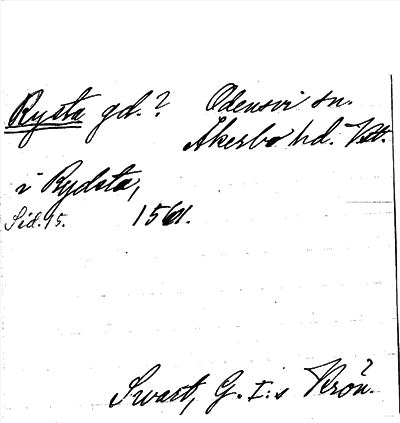 Rysta gd.? Odensvi sn.
Åkerbo hd. Vstt.
i Rydsta,
Sid. 15. 1561.
Swart, G. I:s Krön.